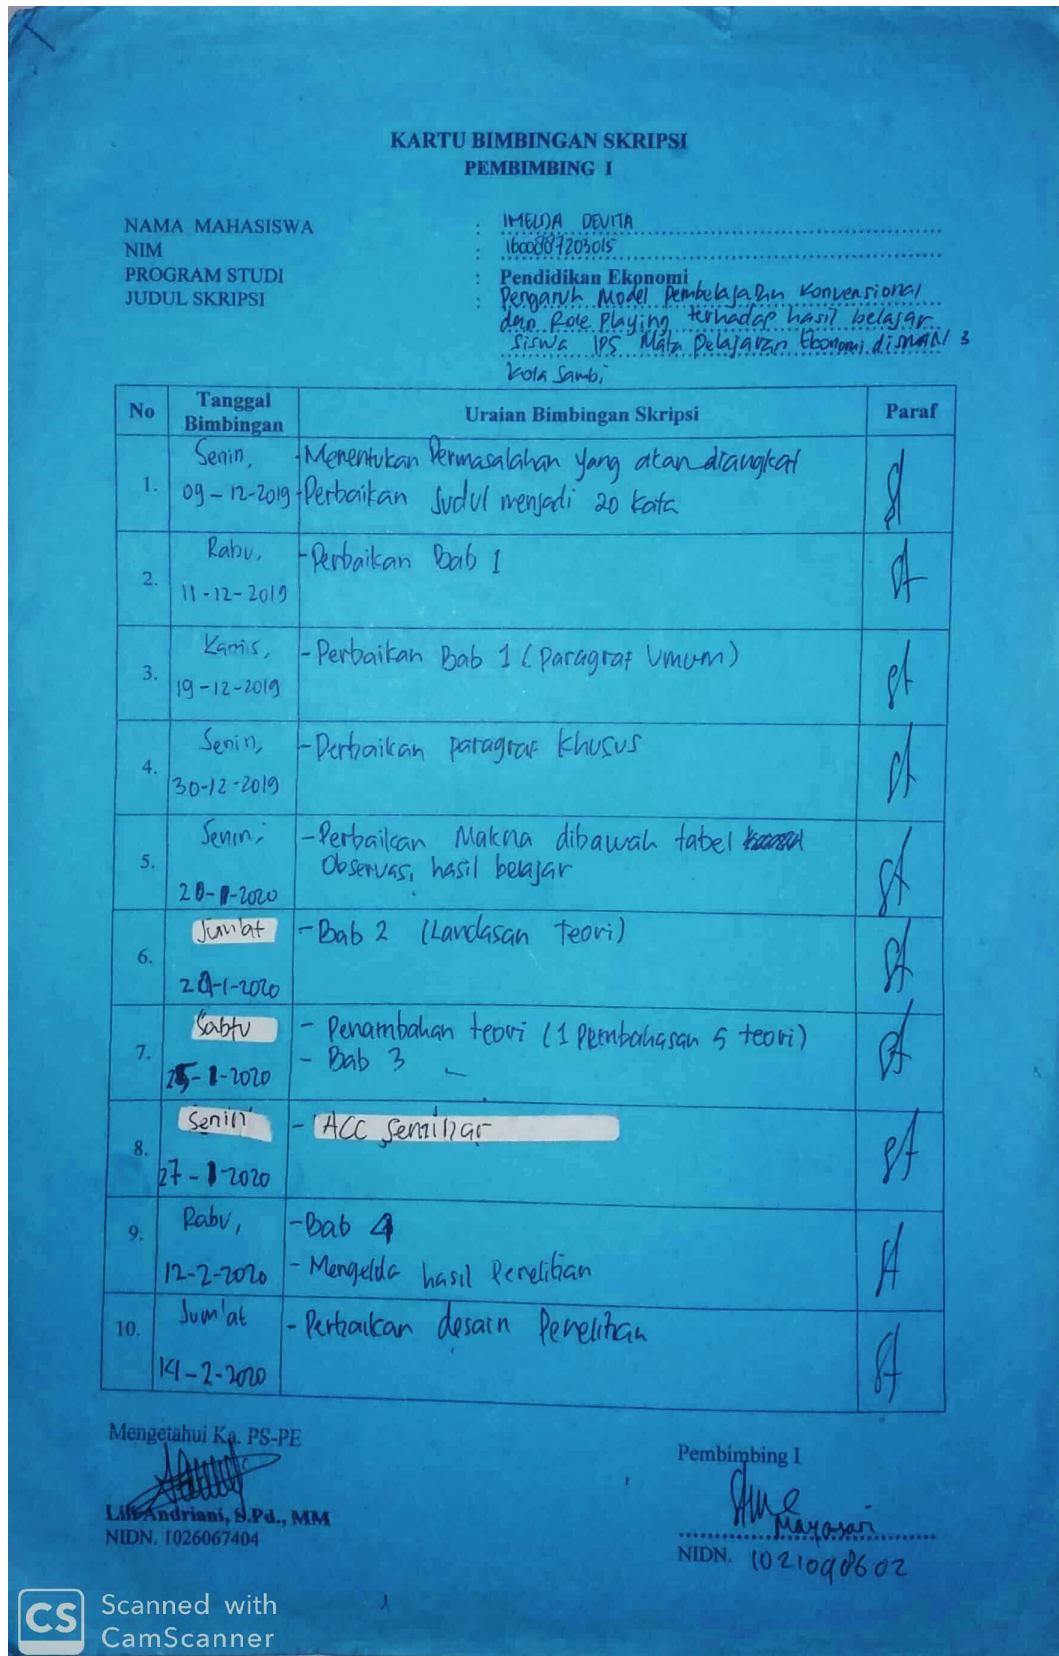 KARTU BIMBINGAN SKRIPSI
PEMBIMBING I
NAMA MAHASISWA : IMELDA DEVITA
NIM : 1600887203015
PROGRAM STUDI : Pendidikan Ekonomi
JUDUL SKRIPSI : Pengaruh Model Pembelajaran Konvensional
dan Role Playing terhadap hasil belajar
siswa IPS Mata Pelajaran Ekonomi di SMAN 3
Kota Jambi
No Tanggal Bimbingan Uraian Bimbingan Skripsi Paraf
1. Senin, 09-12-2019 - Menentukan Permasalahan yang akan diangkat
- Perbaikan Judul menjadi 20 kata
2. Rabu, 11-12-2019 - Perbaikan Bab 1
3. Kamis, 19-12-2019 - Perbaikan Bab 1 (Paragraf Umum)
4. Senin, 30-12-2019 - Perbaikan paragraf khusus
5. Senin, - Perbaikan Makna dibawah tabel
Observasi hasil belajar
6. Jum'at - Bab 2 (Landasan Teori)
7. Sabtu 25-1-2020 - Penambahan teori (1 Pembahasan 5 teori)
- Bab 3
8. Senin 27-1-2020 - ACC Seminar
9. Rabu, 12-2-2020 - Bab 4
- Mengelda hasil Penelitian
10. Jum'at 14-2-2020 - Perbaikan desain Penelitian
Mengetahui Ka. PS-PE
Pembimbing I
Lili Andriani, S.Pd., MM
Mayasari
NIDN. 1026067404
NIDN. 1021098602
CS Scanned with
CamScanner